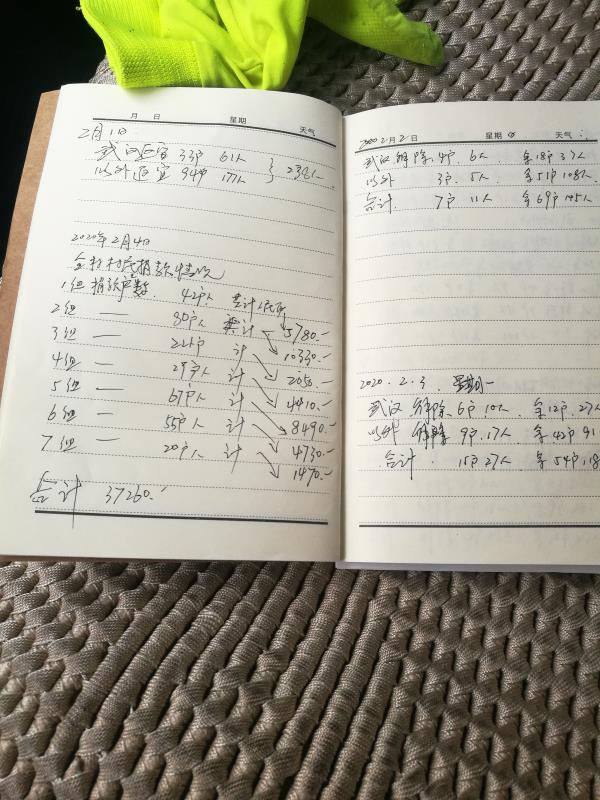 月 日 星期 天气
2月1日
武汉返宜 33户 61人
以外返宜 94户 177人 } 238人
2020年2月4日
村民捐款情况
1组 捐款户数 42户人 共计人民币 5780.-
2组 — 80户人 共计 10330.-
3组 — 22户 计 2050.-
4组 — 29户人 计 4410.-
5组 — 67户人 计 8490.-
6组 — 55户人 计 4730.-
7组 — 20户人 计 1470.-
合计 37260.-
2020 2月 2日 星期 日 天气
武汉解除 4户 6人 余18户 37人
以外 3户 5人 余51户 108人
合计 7户 11人 余69户 145人
2020.2.3 星期一
武汉 解除 6户 10人 余12户 27人
以外 解除 9户 17人 余42户 91
合计 15户 27人 余54户 118